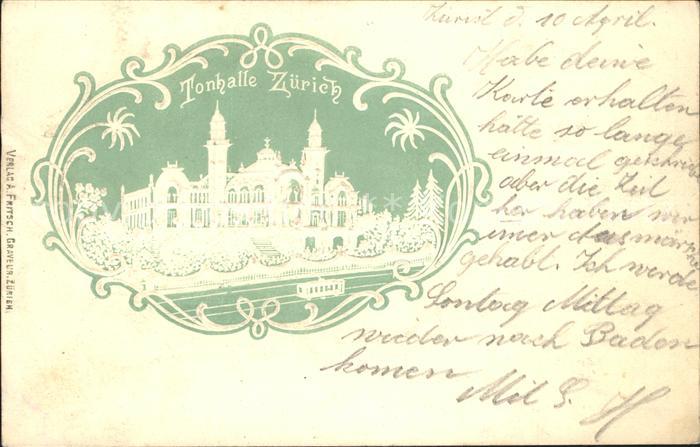 Tonhalle Zürich
VERLAG A. FRITSCH, GRAVEUR, ZÜRICH.
Zürich d. 10 April.
Habe deine
Karte erhalten
hätte so lange
einmal geschrieb
aber die Zeit
her haben wir
immer Ausmärsche
gehabt. Ich werde
Sontag Mittag
wieder nach Baden
komen
Mit G. H